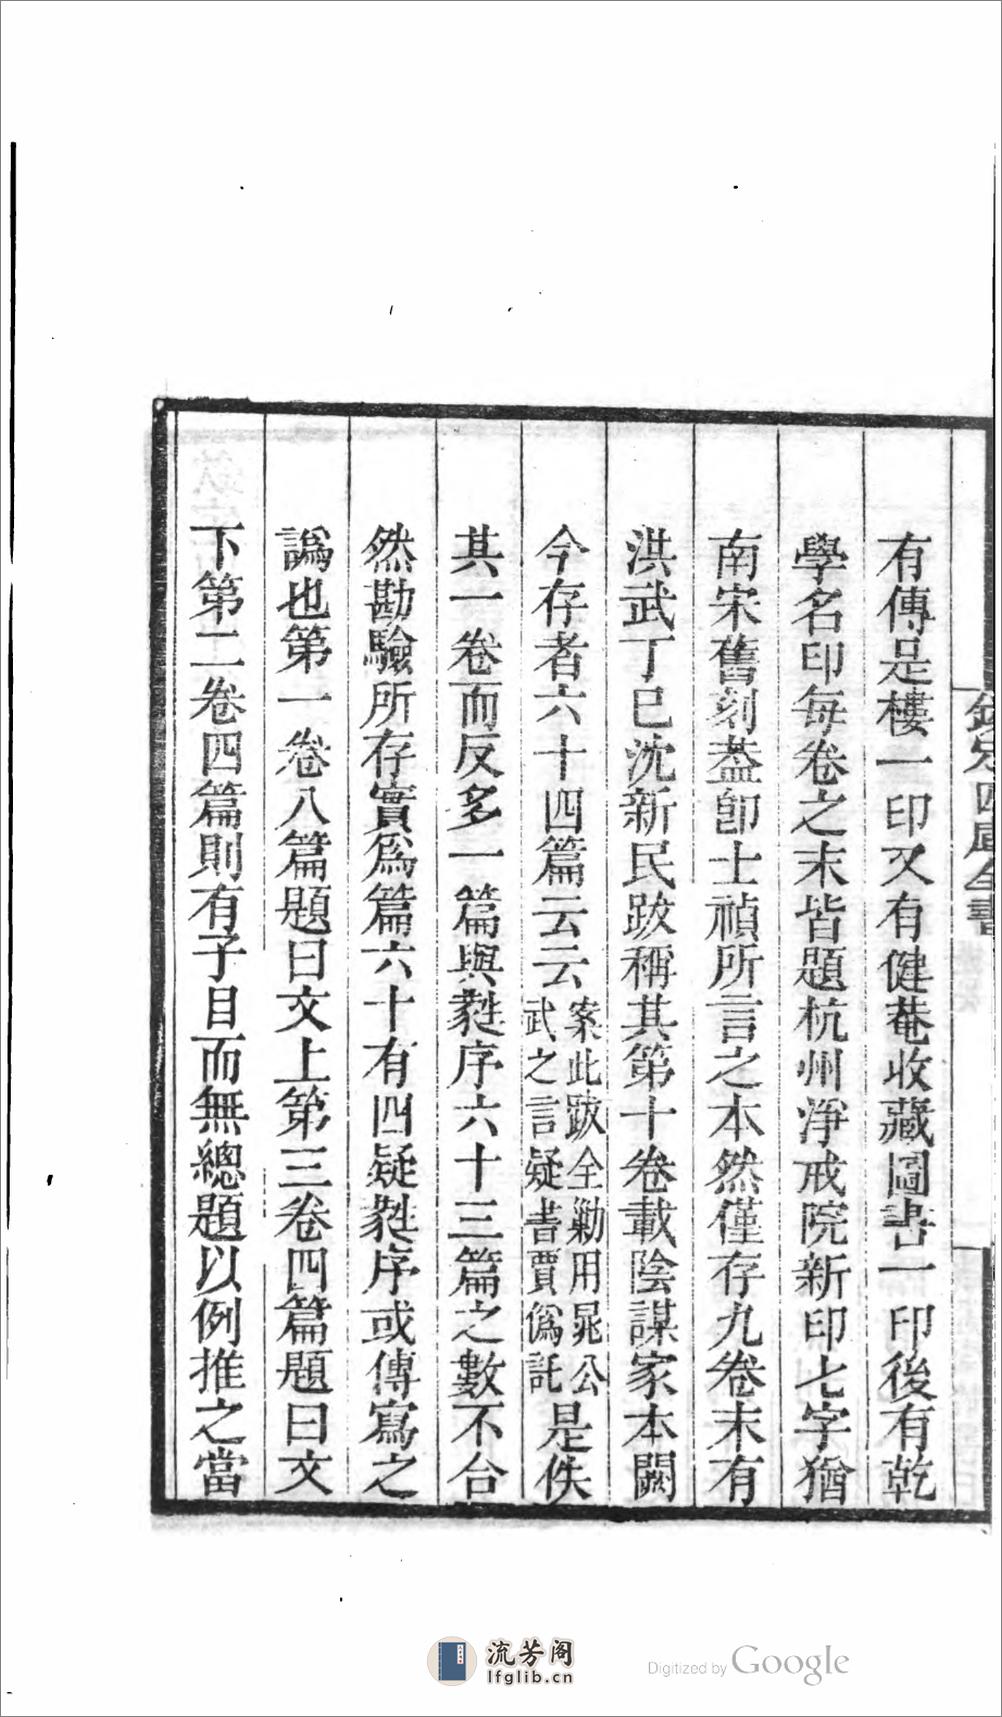 欽定四庫全書
有傳是樓一印又有健菴收藏圖書一印後有乾
學名印每卷之末皆題杭州淨戒院新印七字猶
南宋舊刻葢卽士禎所言之本然僅存九卷末有
洪武丁巳沈新民跋稱其第十卷載陰謀家本闕
今存者六十四篇云云案此跋全勦用晁公武之言疑書賈僞託是佚
其一卷而反多一篇與蕤序六十三篇之數不合
然勘驗所存實爲篇六十有四疑蕤序或傳寫之
譌也第一卷八篇題曰文上第三卷四篇題曰文
下第二卷四篇則有子目而無總題以例推之當
流芳阁
lfglib.cn
Digitized by Google